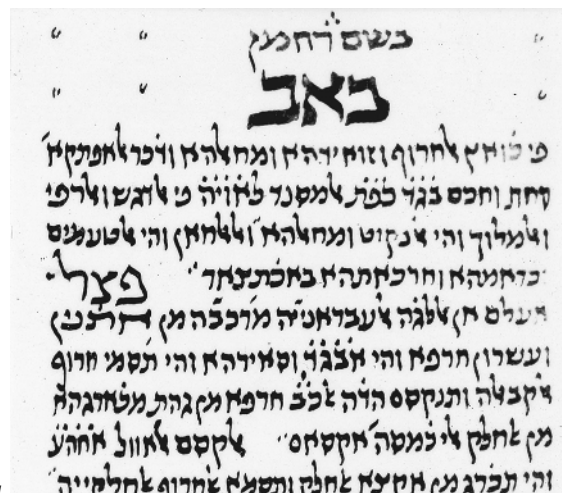 בשם רחמנן
באב
פי כואץ ﭏחרוף וזואידהא ומחאלהא ודכר
וחכם בג̇ד̇ כפ̇ת̇ ﭏמסנד לאויה פי ﭏדגש וﭏרפי
וﭏמלוך והי ﭏנקיט ומחאלהא וﭏלחאן והי ﭏטעמים
וחרכאתהא באכתצאר פצל
אעלם אן ﭏלגה ﭏעבראניה מרכבה מן אתנין
ועשרון חרפא והי אבג̇ד̇ וסאירהא והי תסמי חרוף
ﭏקבאלה ותנקסם הדה ﭏכ̇ב̇ חרפא מן גהת מכ̇ארגהא
מן ﭏחלק ﭏי כ̇מסה אקסאם ﭏקסם ﭏאוול אחהע
והי תכ̇רג מן אקצא ﭏחלק ותסמא ﭏחרוף ﭏחלקייה